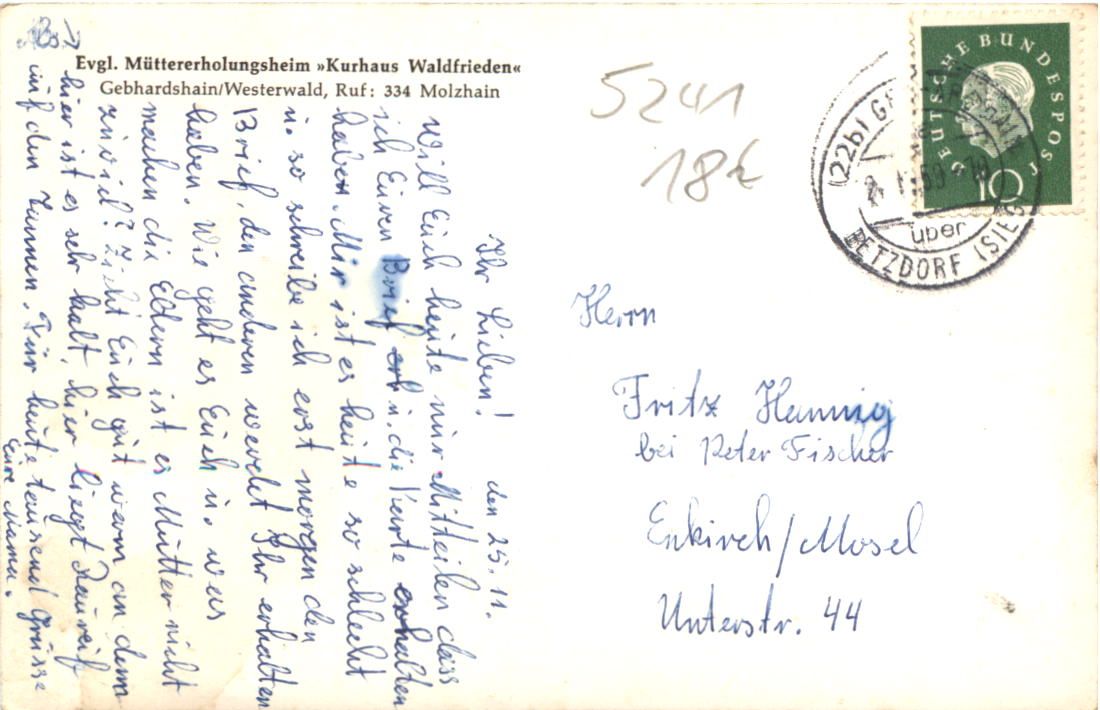 Evgl. Müttererholungsheim »Kurhaus Waldfrieden«
Gebhardshain/Westerwald, Ruf: 334 Molzhain
Ihr Lieben! den 25.11.
Will Euch heute nur Mitteilen dass
ich Euren Brief erh u. die Karte erhalten
haben. Mir ist es heute so schlecht
u. so schreibe ich erst morgen den
Brief, den anderen werdet Ihr erhalten
haben. Wie geht es Euch u. was
machen die Eltern ist es Mutter nicht
zuviel? Zieht Euch gut warm an denn
hier ist es sehr kalt, hier liegt Raureif
auf den Tannen. Für heute tausend Grüsse
Eure Mama.
5241
18€
DEUTSCHE BUNDESPOST
10
(22b)
über
BETZDORF (SIEG)
Herrn
Fritz Hennig
bei Peter Fischer
Enkirch/Mosel
Unterstr. 44